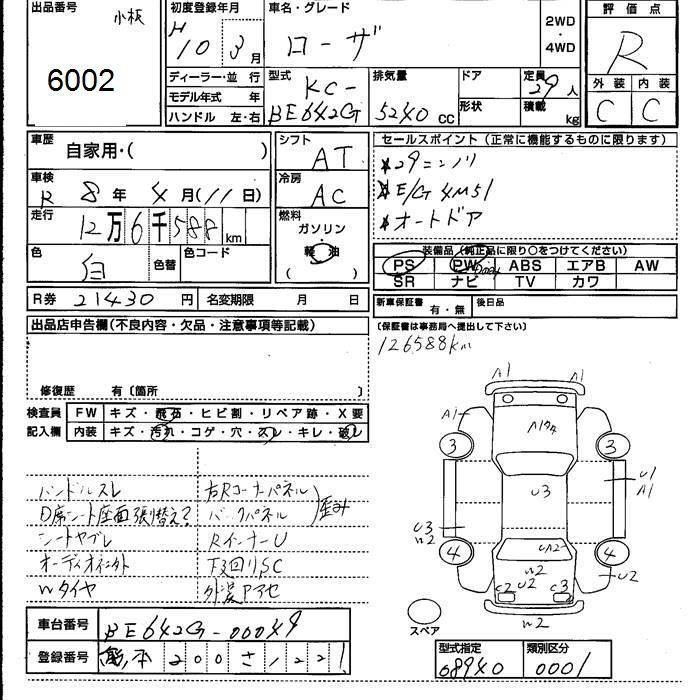 出品番号 小板
6002
初度登録年月
H 10年 3月
車名・グレード
ローザ
2WD
・
4WD
評価点
R
外装 内装
C C
ディーラー・並 行
モデル年式 年
ハンドル 左・右
型式 KC-
BE642G
排気量
5240 CC
ドア
形状
定員 29人
積載 kg
車歴
自家用・( )
車検
R 8年 4月(11日)
走行
12万6千588km
色
白
色替
色コード
R券 21430円 名変期限 月 日
シフト
AT
冷房
AC
燃料
ガソリン・
軽油
( )
セールスポイント(正常に機能するものに限ります)
*29ニンノリ
*E/G 4M51
*オートドア
装備品(純正品に限り○をつけてください)
PS PW ABS エアB AW
SR ナビ TV カワ
新車保証書 有・無 後日品
(保証書は事務局へ提出して下さい)
126588km
出品店申告欄(不良内容・欠品・注意事項等記載)
修復歴 有〔箇所 〕
検査員 FW キズ・飛石・ヒビ割・リペア跡・X要
記入欄 内装 キズ・汚れ・コゲ・穴・スレ・キレ・破レ
ハンドルスレ 右Rコーナーパネル
D席シート座面張替え? バックパネル 歪み
シートヤブレ RインナーU
オーディオ 下廻りSC
Wタイヤ 外装アセ
A1 A1
A1 3 3
U3 U1
A1
U3
W2
4 4
UA2
W2
U2
C2 C3
U2
W2
スペア
車台番号 BE642G-00049
登録番号 熊本200さ122
型式指定 類別区分
08940 0001